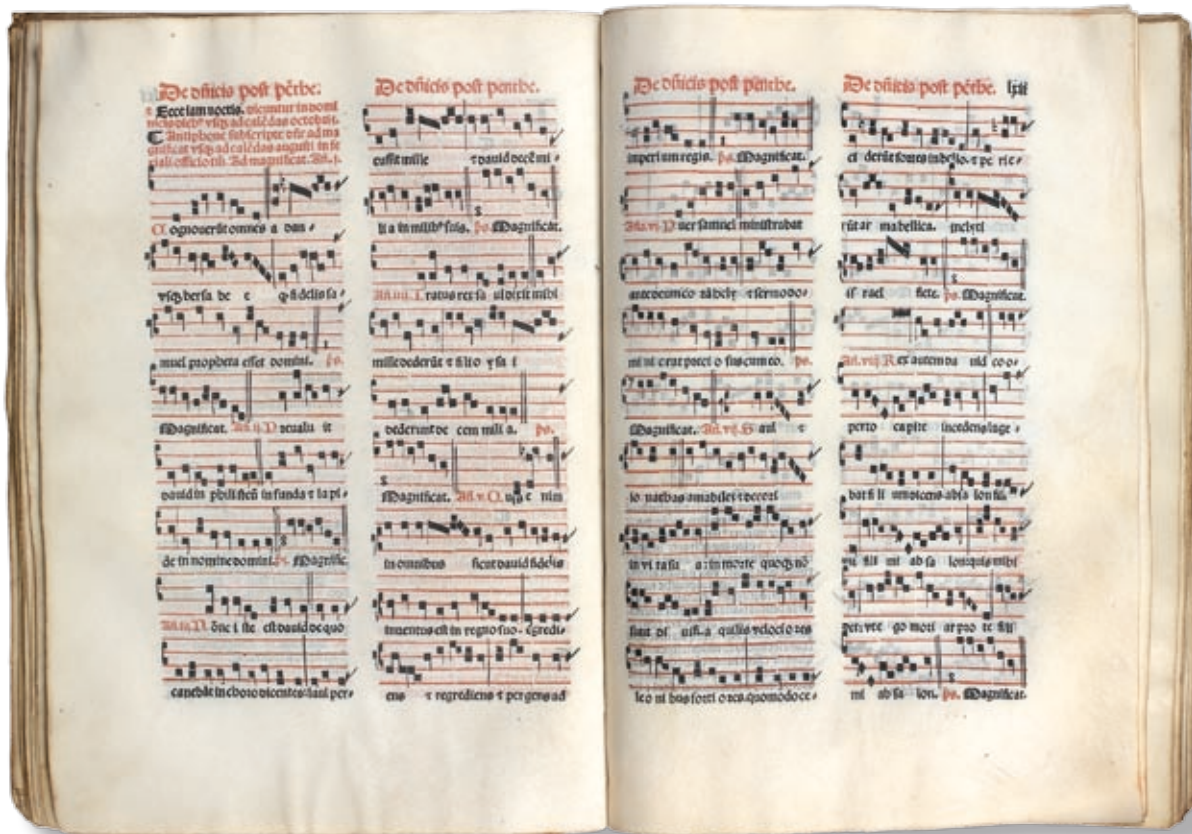 De dñicis post pẽthe.
Ecce iam noctis. dicuntur in domi
Antiphone subscripte dñr ad ma
gnificat vsq ad calẽdas augusti in fe
riali officio tm. Ad magnificat. Añ. j.
C ognouerũt omnes a dan-
vsq bersa be e q fidelis sa-
muel propheta esset domini. ps.
Magnificat. Añ. ij. P reualu it
dauid in philisteũ in funda t la pi-
de in nomine domini. ps. Magnific
Añ. iij. N õne i ste est dauid de quo
canebãt in choro dicentes: saul per-
De dñicis post penthe.
cussit mille t dauid decẽ mi
li a in milibꝰ suis. ps. Magnificat.
Añ. iiij. I ratus rex sa ul dixit mihi
mille dederũt t fi li o ysa i
dederunt de cem mili a. ps.
Magnificat. Añ. v. Q uis e nim
in omnibus sicut dauid fidelis
inuentus est in regno suo. egredi-
ens t regrediens t pergens ad
De dñicis post penthe.
imperium regis. ps. Magnificat.
Añ. vj. P uer samuel ministrabat
ante deum co rã hely t sermo do-
mi ni erat preci o sus cum eo. ps.
Magnificat. Añ. vij. S aul t
io nathas amabiles t decori
in vi ta su a: in morte quoq nõ
sunt di uisi. a quilis veloci o res
le o ni bus forti o res. quomodo ce-
De dñicis post pẽthe. lxii
ci derũt fortes in bello. t pe rie-
rũt ar ma bellica. inclyti
is rael flete. ps. Magnificat.
Añ. viij. R ex autem da uid co o-
perto capite incedens luge-
bat fi li um dicens: absa lon fili
mi fili mi ab sa lon: quis mihi
det: vt e go mori ar pro te fili
mi ab sa lon. ps. Magnificat.